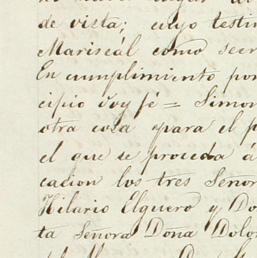 de vista; cuyo testi
Mariscal como secr
En cumplimiento por
cipio doy fé = Simon
otra cosa para el p
el que se proceda á
cacion los tres Señor
Hilario Elguero y Do
ta Señora Doña Dolo